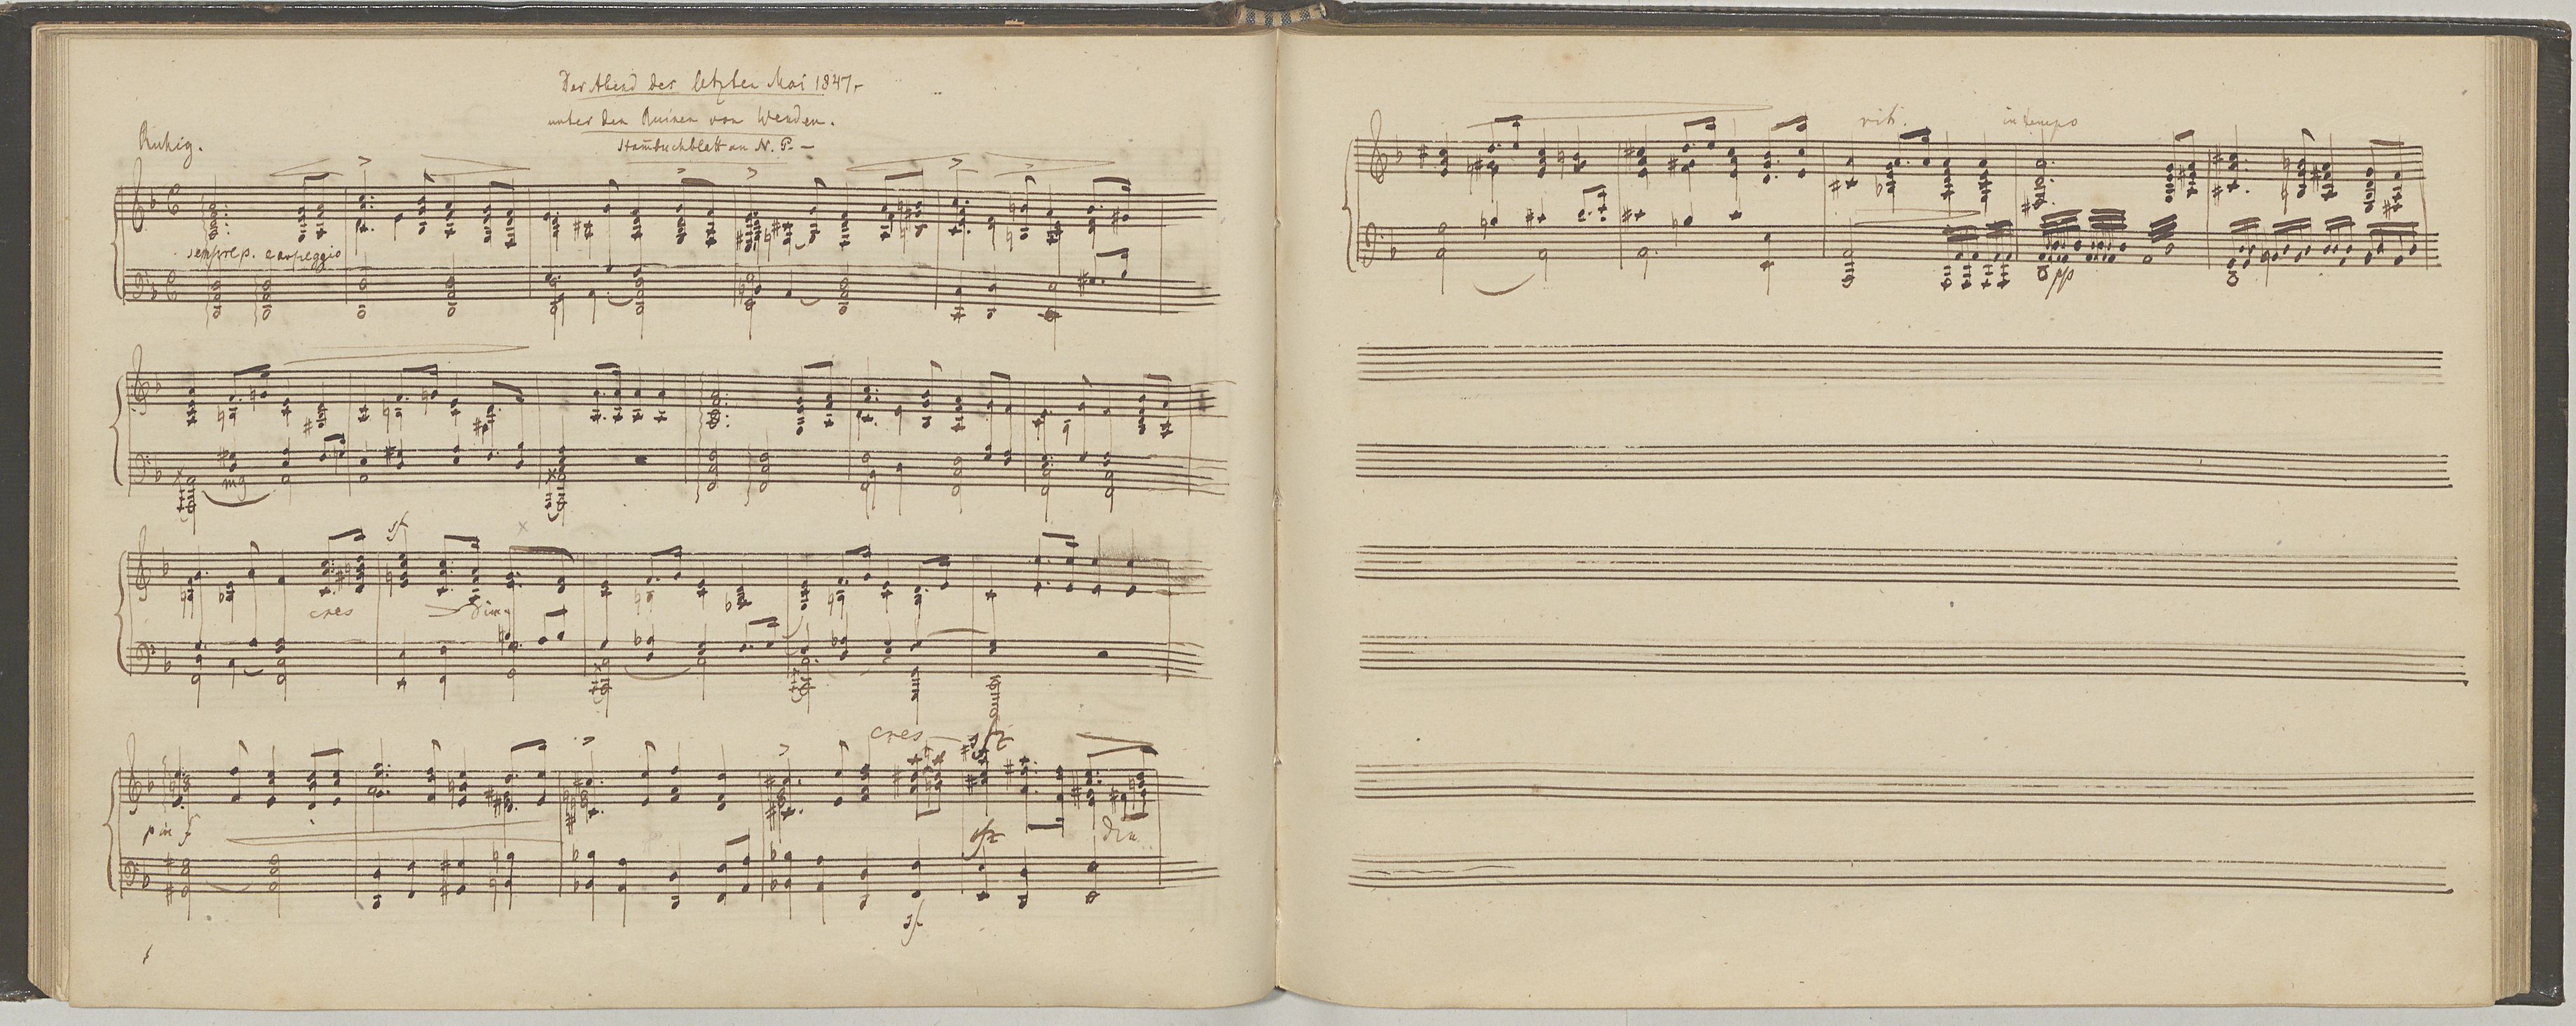 Der Abend des letzten Mai 1847.
unter den Ruinen von Wenden.
Stam̄buchblatt an N. P. —
Ruhig.
sempre p. e arpeggio
mg
sf
cres
dim.
cres
sfz
p in f
sfz
dim
sf
rit.
in tempo
pp